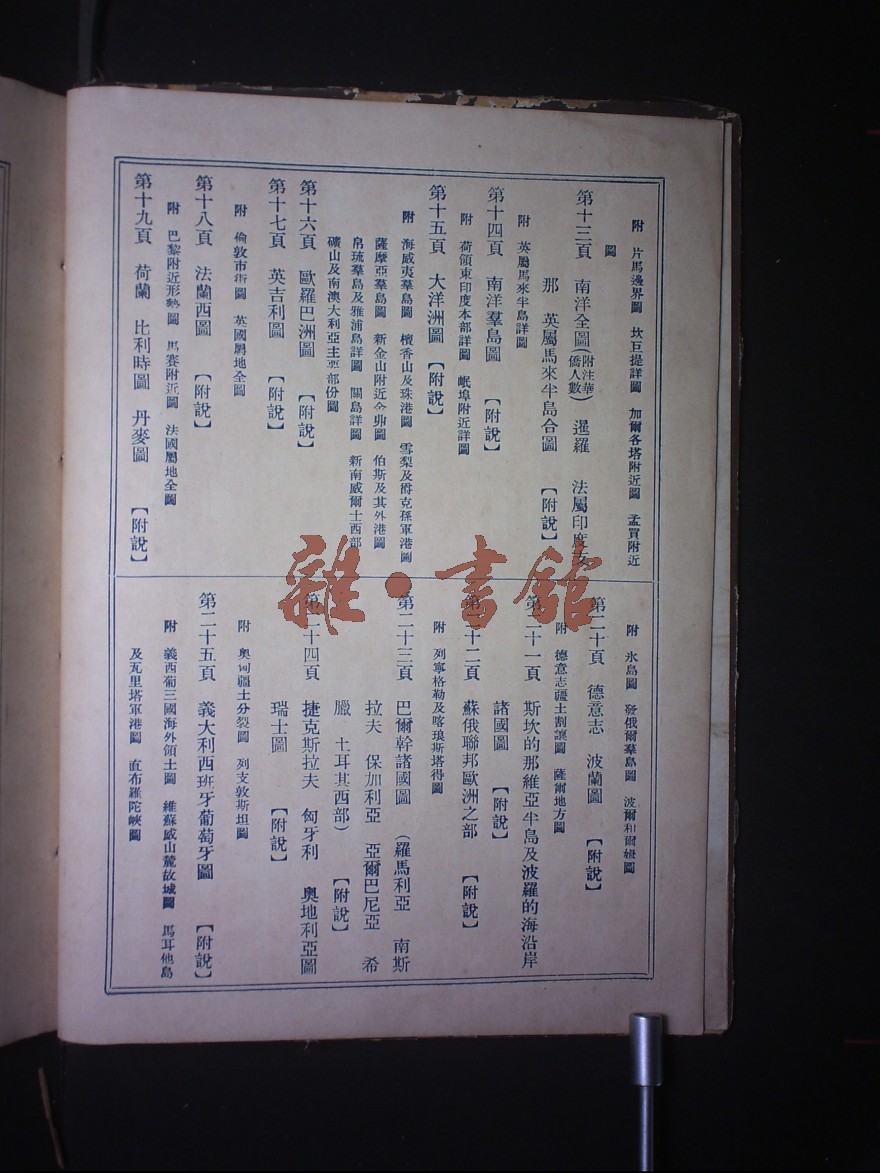 附 片馬邊界圖 坎巨提詳圖 加爾各塔附近圖 孟買附近
圖
第十三頁 南洋全圖(附注華僑人數) 暹羅 法屬印度支
那 英屬馬來半島合圖 【附說】
附 英屬馬來半島詳圖
第十四頁 南洋羣島圖 【附說】
附 荷領東印度本部詳圖 岷埠附近詳圖
第十五頁 大洋洲圖 【附說】
附 海威夷羣島圖 檀香山及珠港圖 雪梨及爵克孫軍港圖
薩摩亞羣島圖 新金山附近全圖 伯斯及其外港圖
帛琉羣島及雅浦島詳圖 關島詳圖 新南威爾士西部
礦山及南澳大利亞主要部份圖
第十六頁 歐羅巴洲圖 【附說】
第十七頁 英吉利圖 【附說】
附 倫敦市街圖 英國屬地全圖
第十八頁 法蘭西圖 【附說】
附 巴黎附近形勢圖 馬賽附近圖 法國屬地全圖
第十九頁 荷蘭 比利時圖 丹麥圖 【附說】
附 氷島圖 發俄爾羣島圖 波爾和爾姆圖
第二十頁 德意志 波蘭圖 【附說】
附 德意志疆土割讓圖 薩爾地方圖
第二十一頁 斯坎的那維亞半島及波羅的海沿岸
諸國圖 【附說】
第二十二頁 蘇俄聯邦歐洲之部 【附說】
附 列寧格勒及喀琅斯塔得圖
第二十三頁 巴爾幹諸國圖 (羅馬利亞 南斯
拉夫 保加利亞 亞爾巴尼亞 希
臘 土耳其西部) 【附說】
第二十四頁 捷克斯拉夫 匈牙利 奧地利亞圖
瑞士圖 【附說】
附 奧匈疆土分裂圖 列支敦斯坦圖
第二十五頁 義大利西班牙葡萄牙圖 【附說】
附 義西葡三國海外領土圖 維蘇威山麓故城圖 馬耳他島
及瓦里塔軍港圖 直布羅陀峽圖
雜·書館